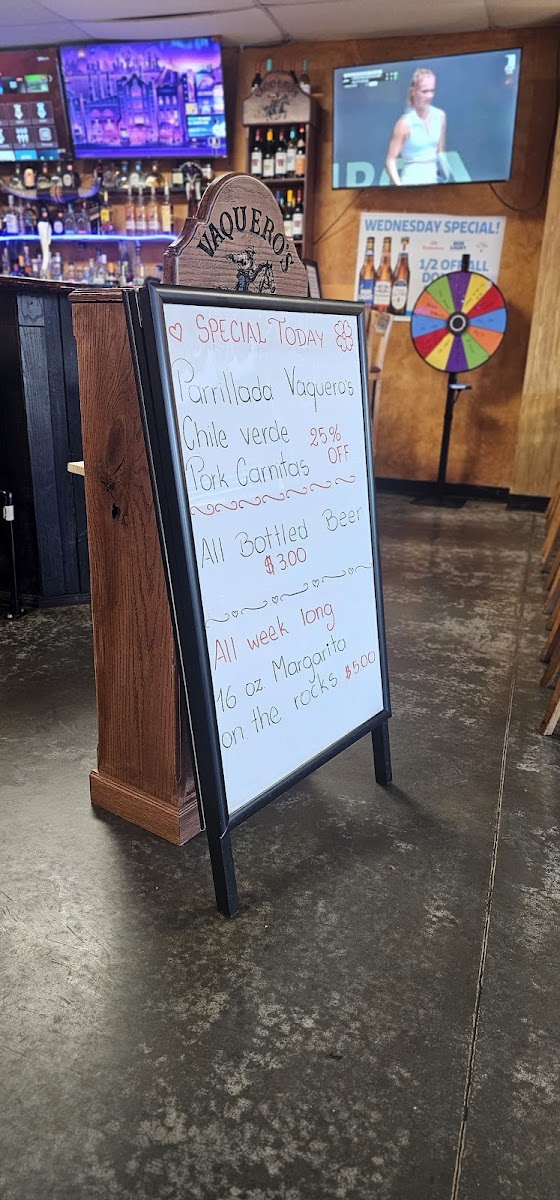 WEDNESDAY SPECIAL!
1/2 OFF ALL
VAQUERO'S
SPECIAL TODAY
Parrillada Vaquero's
Chile verde 25%
Pork Carnitas OFF
All Bottled Beer
$3.00
All week long
16 oz. Margarita
on the rocks $5.00